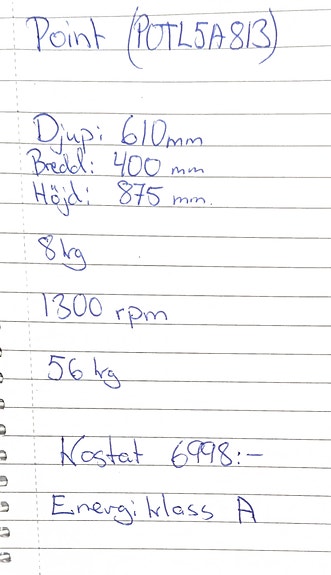 Point (POTL5A813)
Djup: 610mm
Bredd: 400 mm
Höjd: 875 mm.
8kg
1300 rpm
56 kg
Kostat 6998:-
Energiklass A